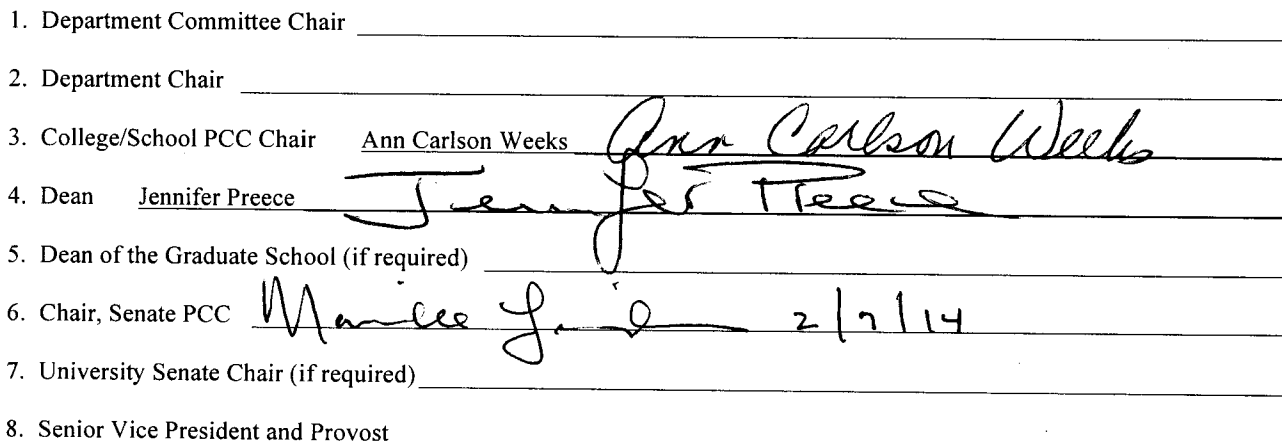 1. Department Committee Chair
2. Department Chair
3. College/School PCC Chair Ann Carlson Weeks Ann Carlson Weeks
4. Dean Jennifer Preece Jennifer Preece
5. Dean of the Graduate School (if required)
6. Chair, Senate PCC 2/7/14
7. University Senate Chair (if required)
8. Senior Vice President and Provost